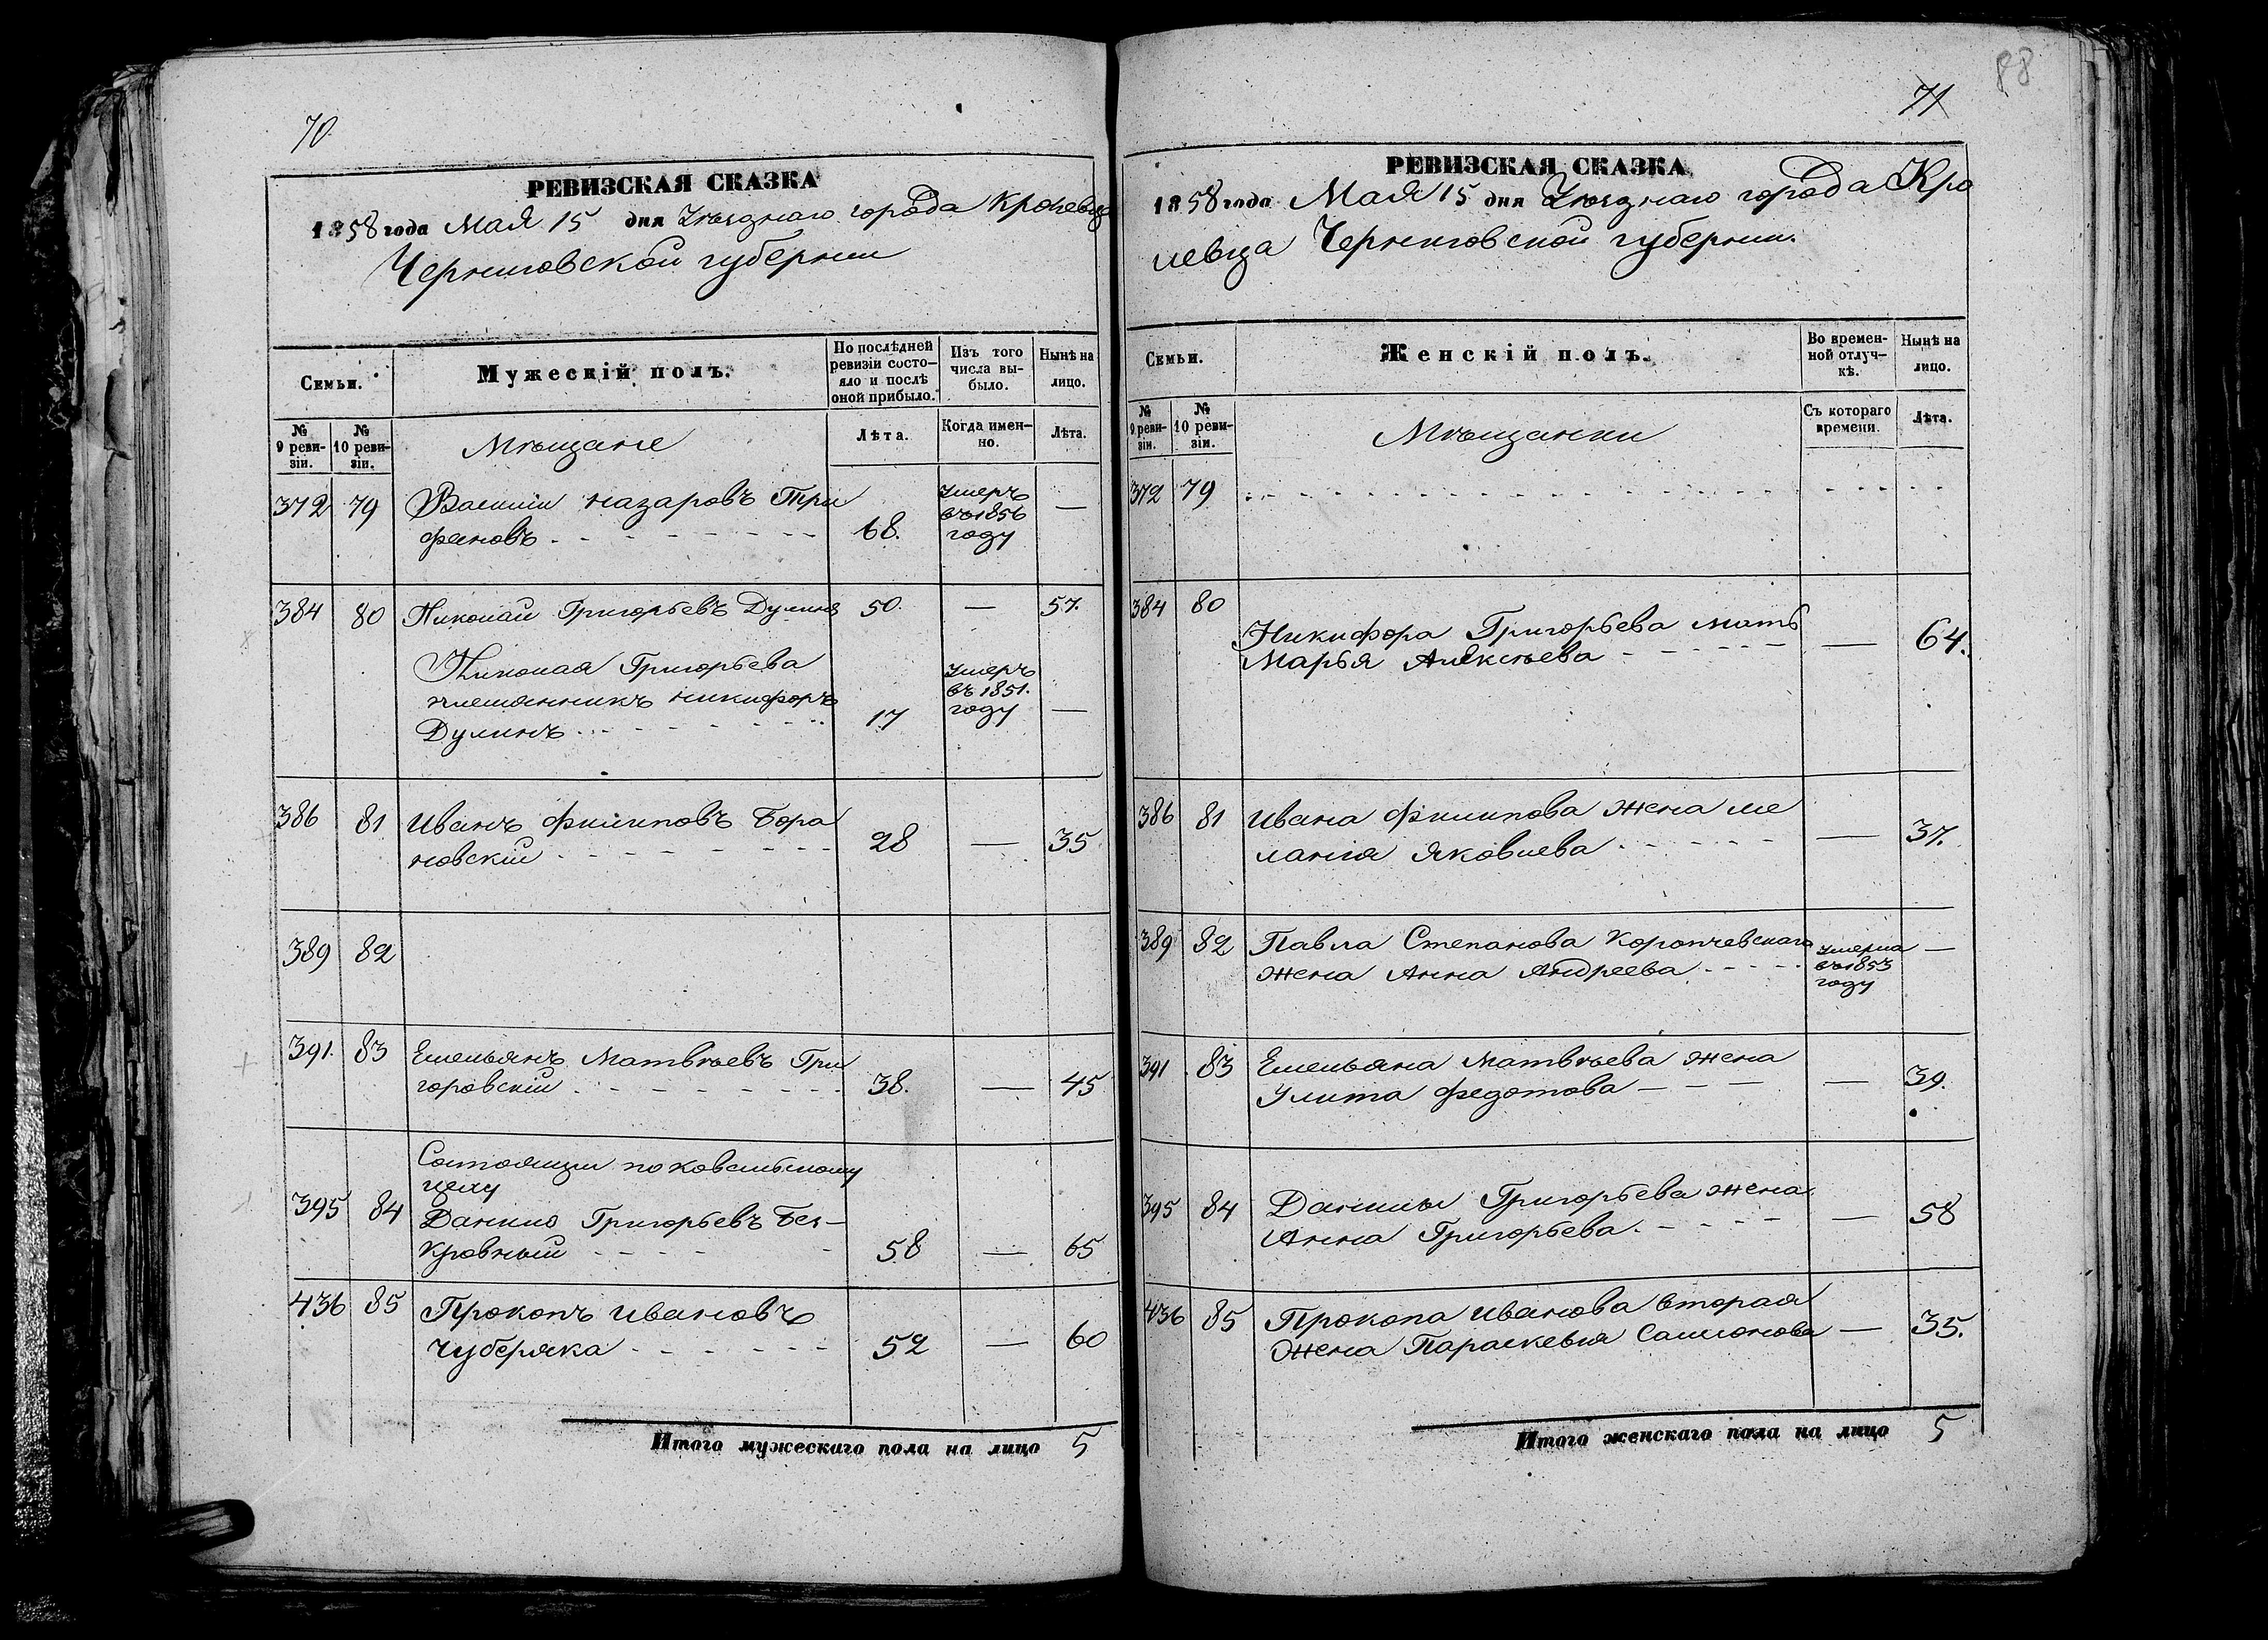 70
РЕВИЗСКАЯ СКАЗКА
1858 года Мая 15 дня Уѣзднаго города Кролевца
Черниговской губернии
Семьи.
Мужескій полъ.
По послѣдней ревизіи состо-
яло и послѣ
оной прибыло.
Изъ того
числа вы-
было.
Нынѣ на
лицо.
№
9 реви-
зіи.
№
10 реви-
зіи.
Мѣщане
Лѣта.
Когда имен-
но.
Лѣта.
372 79 Василій Назаровъ Три
фановъ 68. Умеръ
въ 1856
году —
384 80 Николай Григорьевъ Дулинъ 50. — 57.
Николая Григорьева
племянникъ Никифоръ
Дулинъ 17 Умеръ
въ 1851.
году —
386 81 Иванъ Филиповъ Бора
новскій 28 — 35
389 82
391. 83 Емельянъ Матвѣевъ Гри
горовскій 38. — 45
Состоящии по
цеху
395 84 Данило Григорьевъ Без-
кровный 58 — 65
436 85 Прокопъ Ивановъ
Чуберяка 52 — 60
Итого мужескаго пола на лицо 5
88
71
РЕВИЗСКАЯ СКАЗКА
1858 года Мая 15 дня Уѣзднаго города Кро
левца Черниговской губернии.
Семьи.
Женскій полъ.
Во времен-
ной отлуч-
кѣ.
Нынѣ на
лицо.
№
9 реви-
зіи.
№
10 реви-
зіи.
Мѣщанки
Съ котораго
времени.
Лѣта.
372 79
384 80
Никифора Григорьева мать
Марья Алексѣева — 64.
386 81 Ивана Филипова жена Ме
ланія Яковлева — 37.
389 82 Павла Степанова Коропчевскаго
жена Анна Андреева Умерла
въ 1853
году —
391 83 Емельяна Матвѣева жена
Улита Федотова — 39.
395 84 Данилы Григорьева жена
Анна Григорьева — 58
436 85 Прокопа Иванова вторая
жена Параскевия Самсонова — 35.
Итого женскаго пола на лицо 5